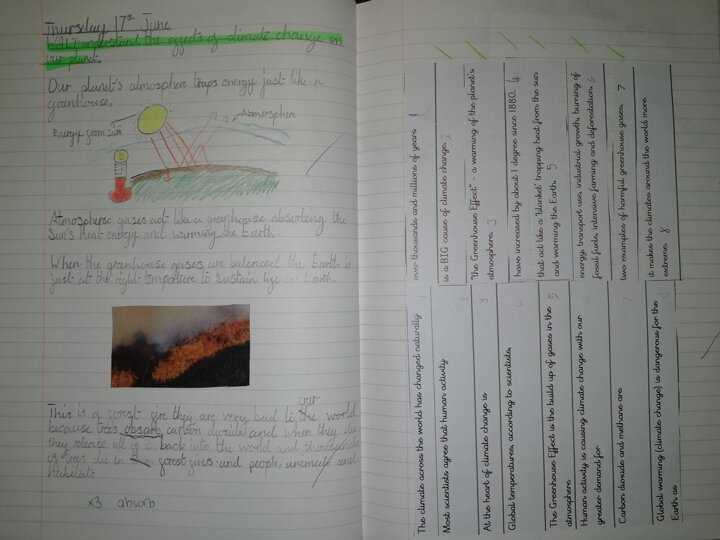 Thursday 17th June
WALT understand the effects of climate change on
our planet.
Our planet's atmosphere traps energy just like a
greenhouse.
Atmosphere
Energy from Sun
gases act like a greenhouse the
Sun's heat energy and warming the Earth
When the greenhouse gases are balenced the Earth is
just at the right temperture to sustain life on Earth.
our
This is a forest fire they are very bad to the world
because trees absorb carbon dioxide and when they die
they release all of it back into the world and thousands
of trees die in forest fires and people, animals and
habitats
x3 absorb
The climate across the world has changed naturally 1
Most scientists agree that human activity 2
At the heart of climate change is 3
Global temperatures, according to scientists,
The Greenhouse Effect is the build up of gases in the 5
atmosphere
Human activity is causing climate change with our
greater demand for
Carbon dioxide and methane are 7
Global warming (climate change) is dangerous for the
Earth as
over thousands and millions of years 1
is a BIG cause of climate change. 2
'the Greenhouse Effect' - a warming of the planet's
atmosphere. 3
have increased by about 1 degree since 1880. 4
that act like a 'blanket' trapping heat from the sun
and warming the Earth. 5
energy, transport use, industrial growth, burning of
fossil fuels, intensive farming and deforestation. 6
two examples of harmful greenhouse gases. 7
it makes the climates around the world more
extreme. 8